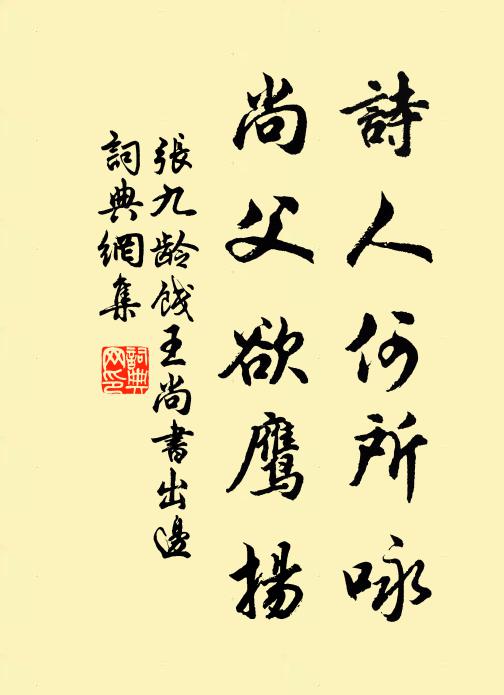 詩人何所咏
尚父欲鹰揚
張九龄餞王尚書出邊
詞典網集
詞典网印